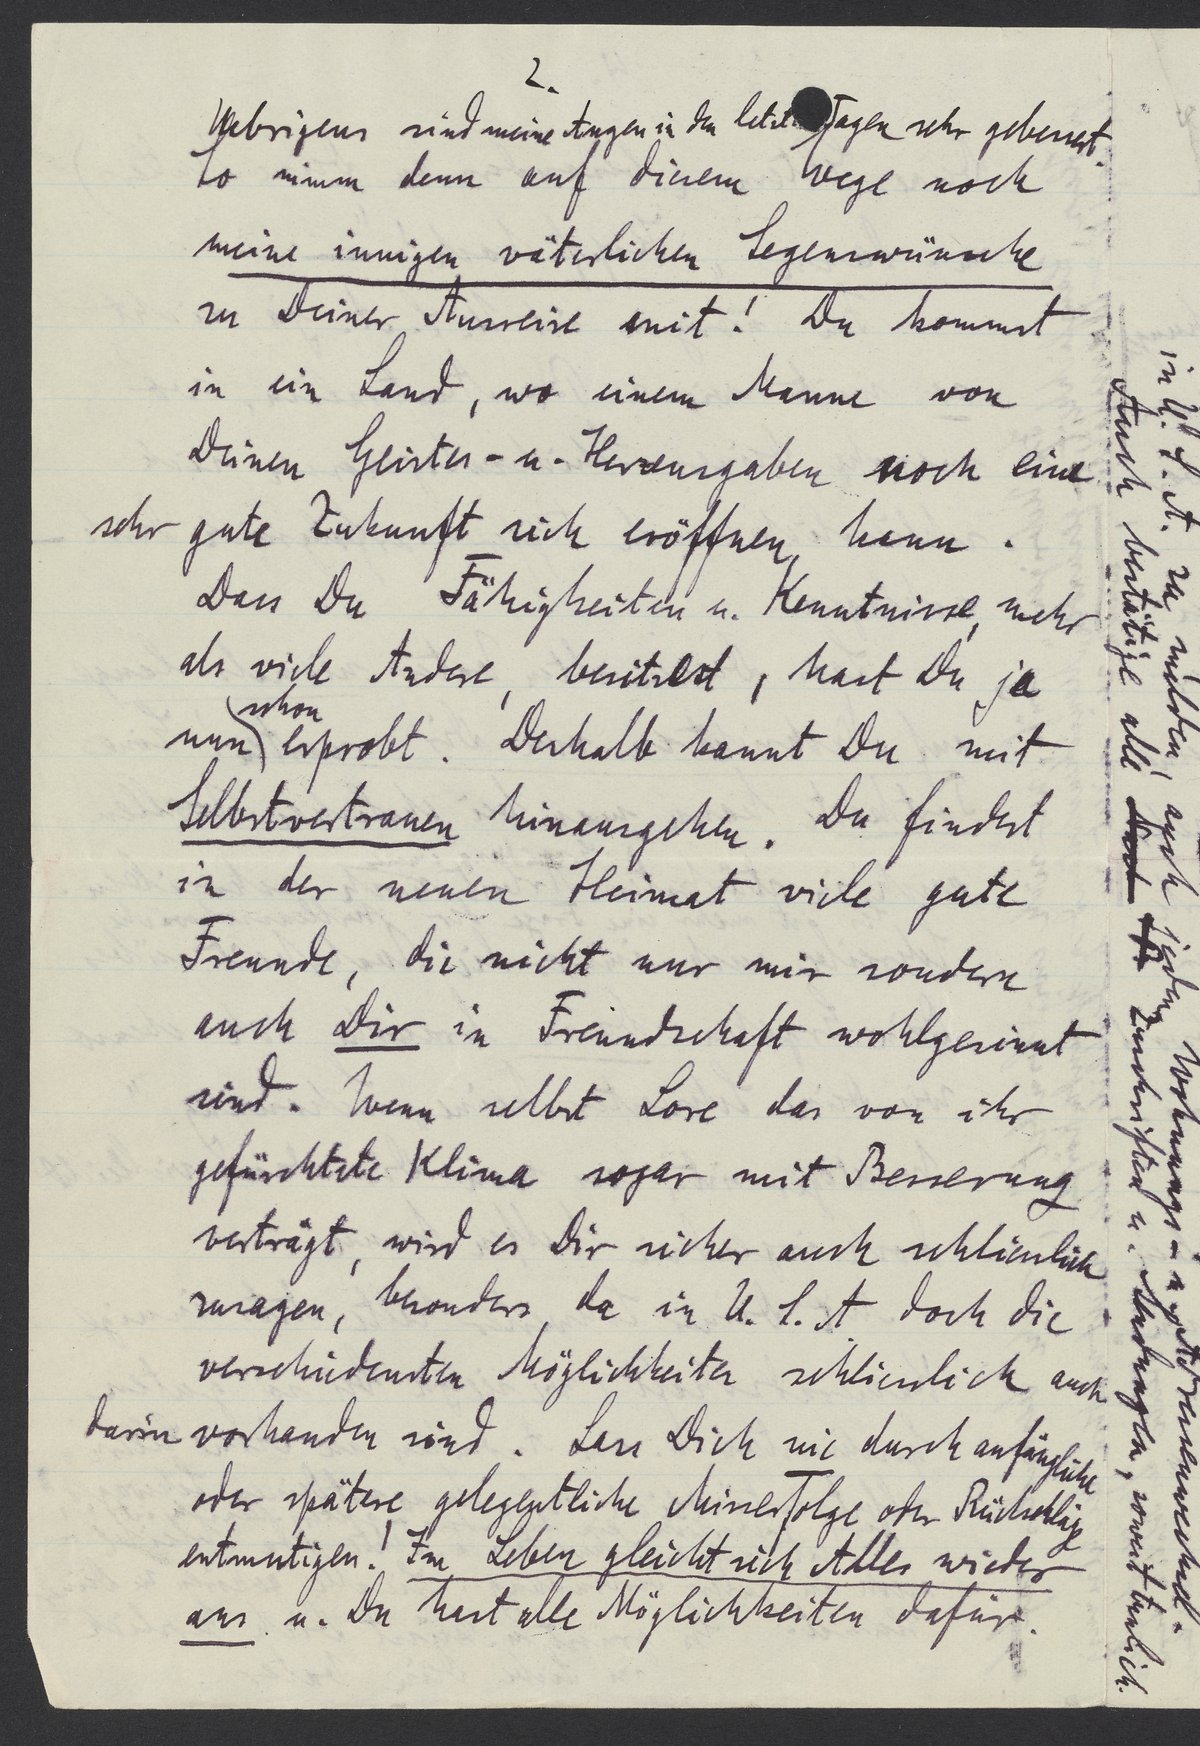 2.
Uebrigens sind meine Augen in den letzten Tagen sehr gebessert.
So nimm denn auf diesem Wege noch
meine innigen väterlichen Segenswünsche
zu Deiner Ausreise mit! Du kommst
in ein Land, wo einem Manne von
Deinen Geistes- u- Herzensgaben noch eine
sehr gute Zukunft sich eröffnen kann.
Dass Du Fähigkeiten u. Kenntnisse, mehr
als viele Andere, besitzest, hast Du ja
schon
nun erprobt. Deshalb kannst Du mit
Selbstvertrauen hinausgehen. Du findest
in der neuen Heimat viele gute
Freunde, die nicht nur mir sondern
auch Dir in Freundschaft wohlgesinnt
sind. Wenn selbst Lore das von ihr
gefürchtete Klima sogar mit Besserung
verträgt, wird es Dir sicher auch schliesslich
zusagen, besonders da in U.S.A doch die
verschiedensten Möglichkeiten schliesslich auch
darin vorhanden sind. Lass Dich nie durch anfängliche
oder spätere gelegentliche Misserfolge oder Rückschläge
entmutigen! Im Leben gleicht sich Alles wieder
aus u. Du hast alle Möglichkeiten dafür.
in U.S.A. zu melden! auch jeden Wohnungs- u. Adressenwechsel.
Auch bestätige alle Zuschriften u. Sendungen, soweit tunlich.